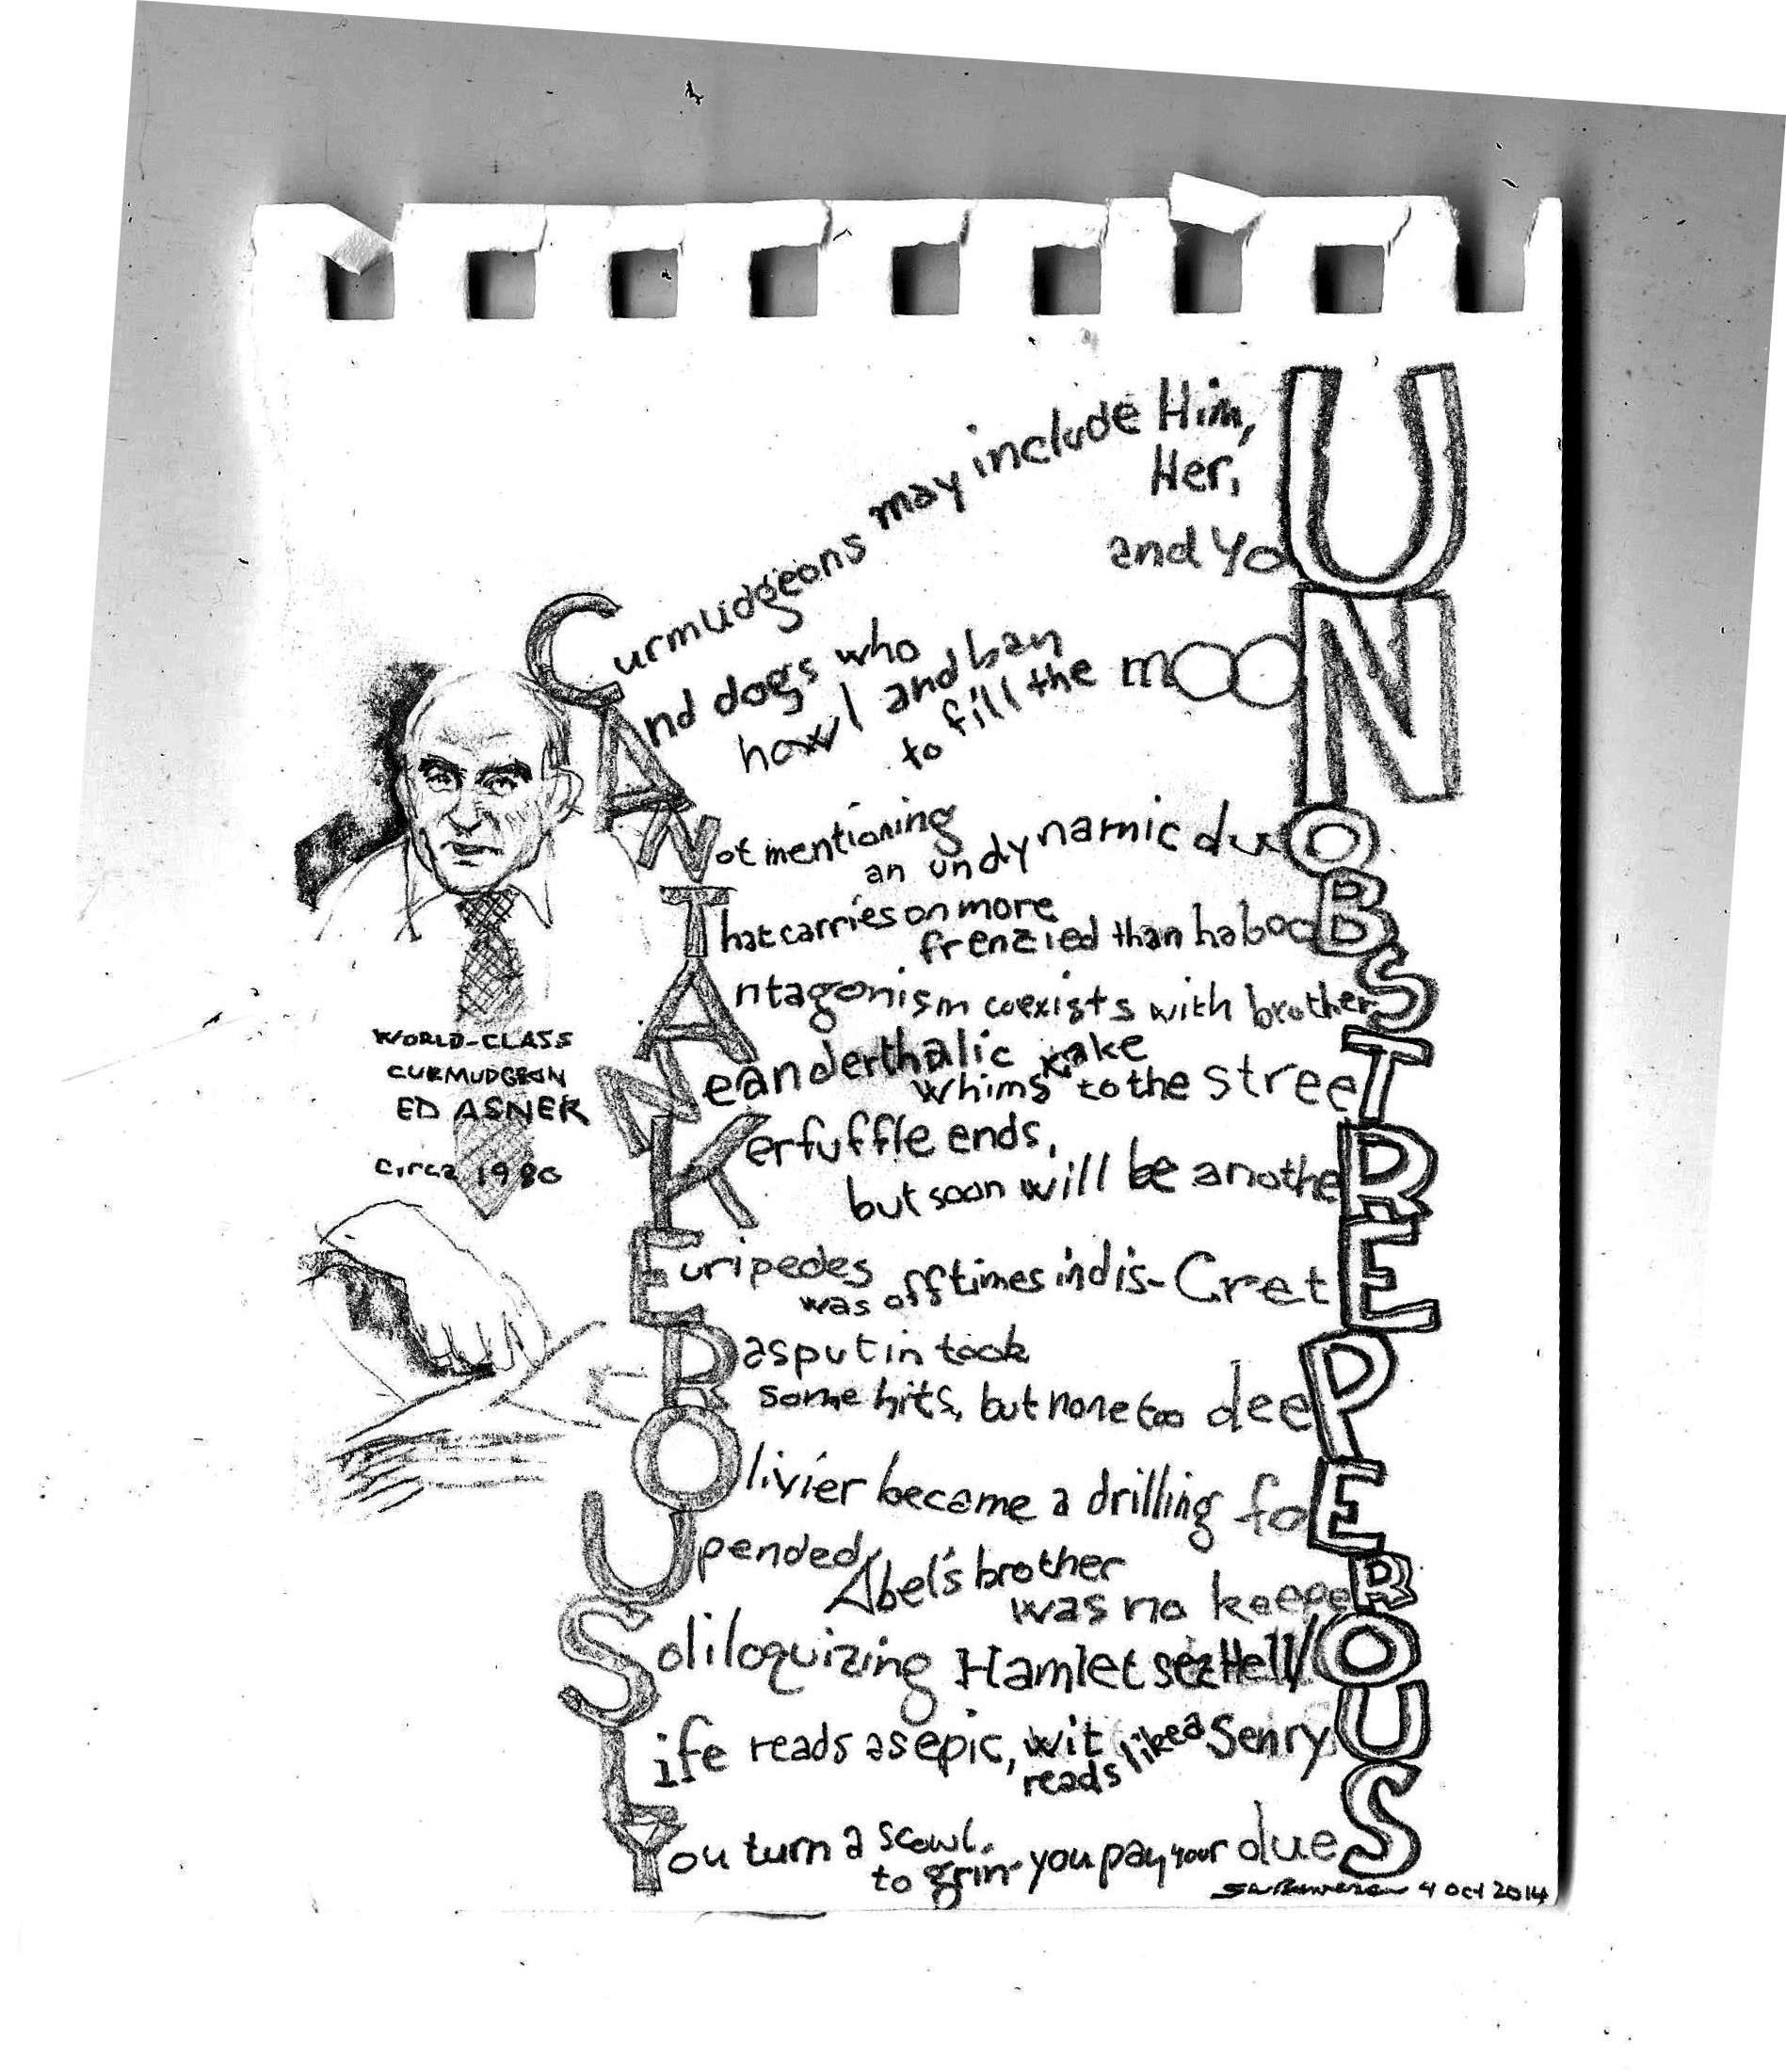 Curmudgeons may include Him,
Her,
and YoU
And dogs who
howl and ban
to fill the mooN
Not mentioning
an undynamic duO
That carries on more
frenzied than hobooB
Antagonism coexists with brotherS
Neanderthalic
whims take to the streeT
Kerfuffle ends,
but soon will be anotheR
Euripedes
was offtimes indis-CretE
Rasputin took
some hits, but none too deeP
Olivier became a drilling foE
Upended,
Abel's brother
was no keepeR
Soliloquizing Hamlet sez Hell/O
Life reads as epic, wit
reads like a SenryU
You turn a scowl
to grin - you pay your dueS
WORLD-CLASS
CURMUDGEON
ED ASNER
circa 1980
4 Oct 2014